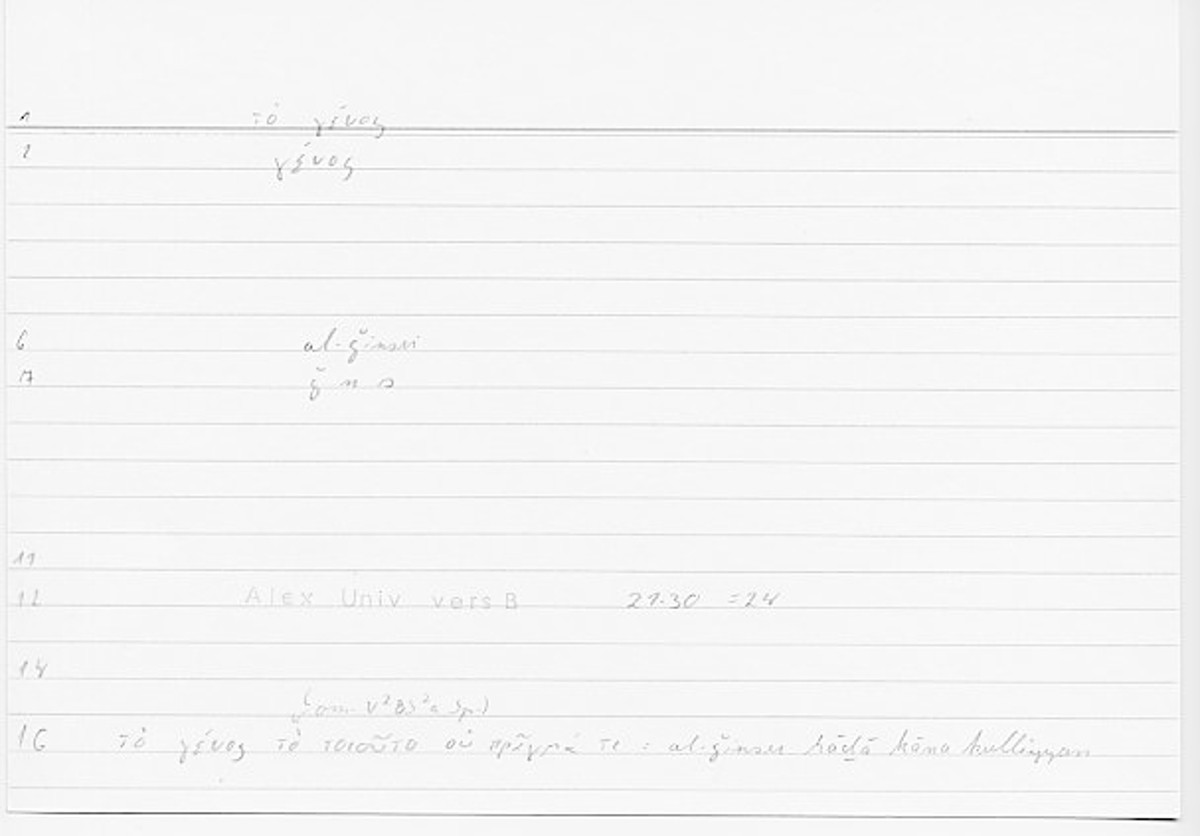 1 τὸ γένος
2 γένος
6 al-ǧinsu
7 ǧ n s
11
12 Alex Univ vers B 21.30 =24
14
(om. V²BS²a Sp.)
16 τὸ γένος τὸ τοιοῦτο οὐ πρᾶγμά τι : al-ǧinsu hāḏā kāna kulliyyan